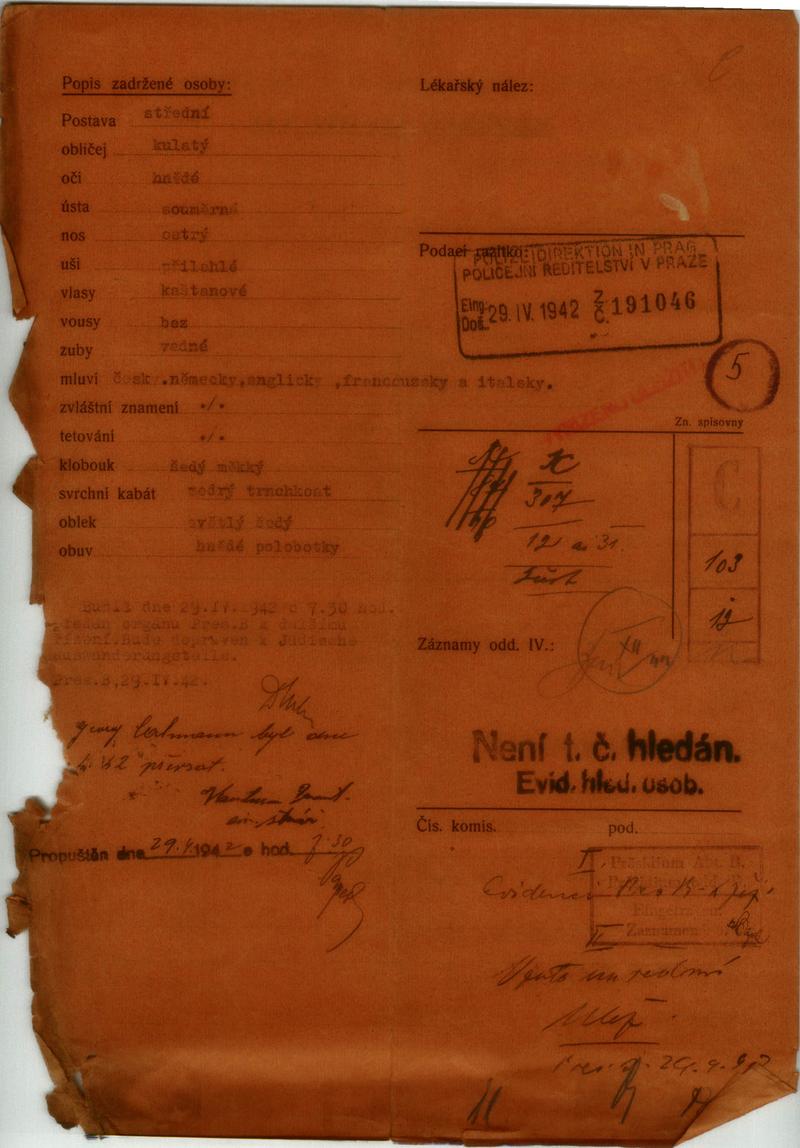 Popis zadržené osoby:
Postava střední
obličej kulatý
oči hnědé
ústa souměrné
nos ostrý
uši přilehlé
vlasy kaštanové
vousy bez
zuby vadné
mluví česky,německy,anglicky ,francouzsky a italsky.
zvláštní znamení ./.
tetování ./.
klobouk šedý měkký
svrchní kabát modrý trnchkoat
oblek světlý šedý
obuv hnědé polobotky
Budiž dne 29.IV.1942 o 7.30 hod.
předán orgánu Pres.B k dalšímu
řízení.Bude dopraven k Jüdische
auswanderungstelle.
Pres.B,29.IV.42.
Georg byl dne
42 převzat.
Propuštěn dne 29.4.1942 o hod. 7.30
Lékařský nález:
Podací razítko:
POLIZEIDIREKTION IN PRAG
POLICEJNÍ ŘEDITELSTVÍ V PRAZE
Eing. Doš. 29. IV. 1942 Z Č. 191046
5
Zn. spisovny
K
307
12 31.
C
103
12
Záznamy odd. IV.:
Není t. č. hledán.
Evid. hled. osob.
Čís. komis. pod.
I.
Präsidium Abt. B.
Evidenci
Eingetragen
Zaznamenáno
II
29.4.42